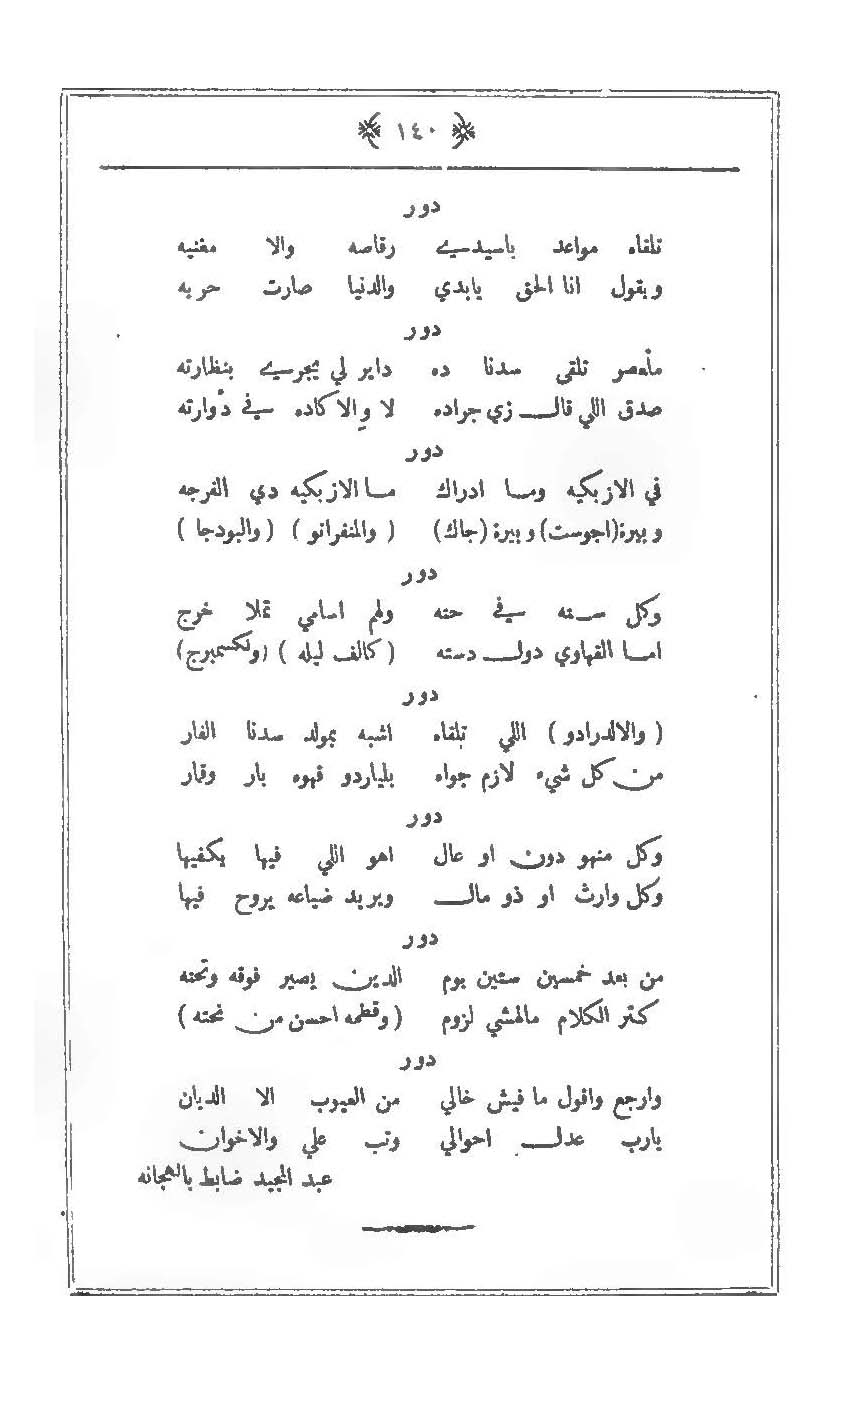 ﴿ ١٤٠ ﴾
دور
تلقاه مواعد ياسيدي رقاصه والا مغنيه
ويقول انا الحق يابدي والدنيا صارت حريه
دور
ماهو تلقى سدنا ده داير لي يجري بنظارته
صدق اللي قال زي جراده لا والا كاده في دوارته
دور
في الازبكيه وما ادراك ما الازبكيه دي الفرجه
وبيرة (اجوست) وبيرة (جاك) (والمنفرانو) (والبودجا)
دور
وكل سته في حته ولهم اسامي تملا خرج
اما القهاوي دول دسته (كالف ليله) (ولكسمبرج)
دور
(والالدرادو) اللي تلقاه اشبه بمولد سدنا الفار
من كل شيء لازم جواه بلياردو قهوه بار وقمار
دور
وكل منهو دون او عال اهو اللي فيها يكفيها
وكل وارث او ذو مال ويريد ضياعه يروح فيها
دور
من بعد خمسين ستين يوم الدين يصير فوقه وتحته
كتر الكلام مالهشي لزوم (وقطمه احسن من نحته)
دور
وارجع واقول ما فيش خالي من العيوب الا الديان
يارب عدل احوالي وتب علي والاخوان
عبد المجيد ضابط بالهجانه